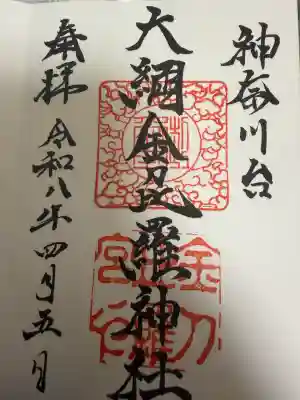 神奈川台
大綱金毘羅神社
奉拝 令和八年四月五日